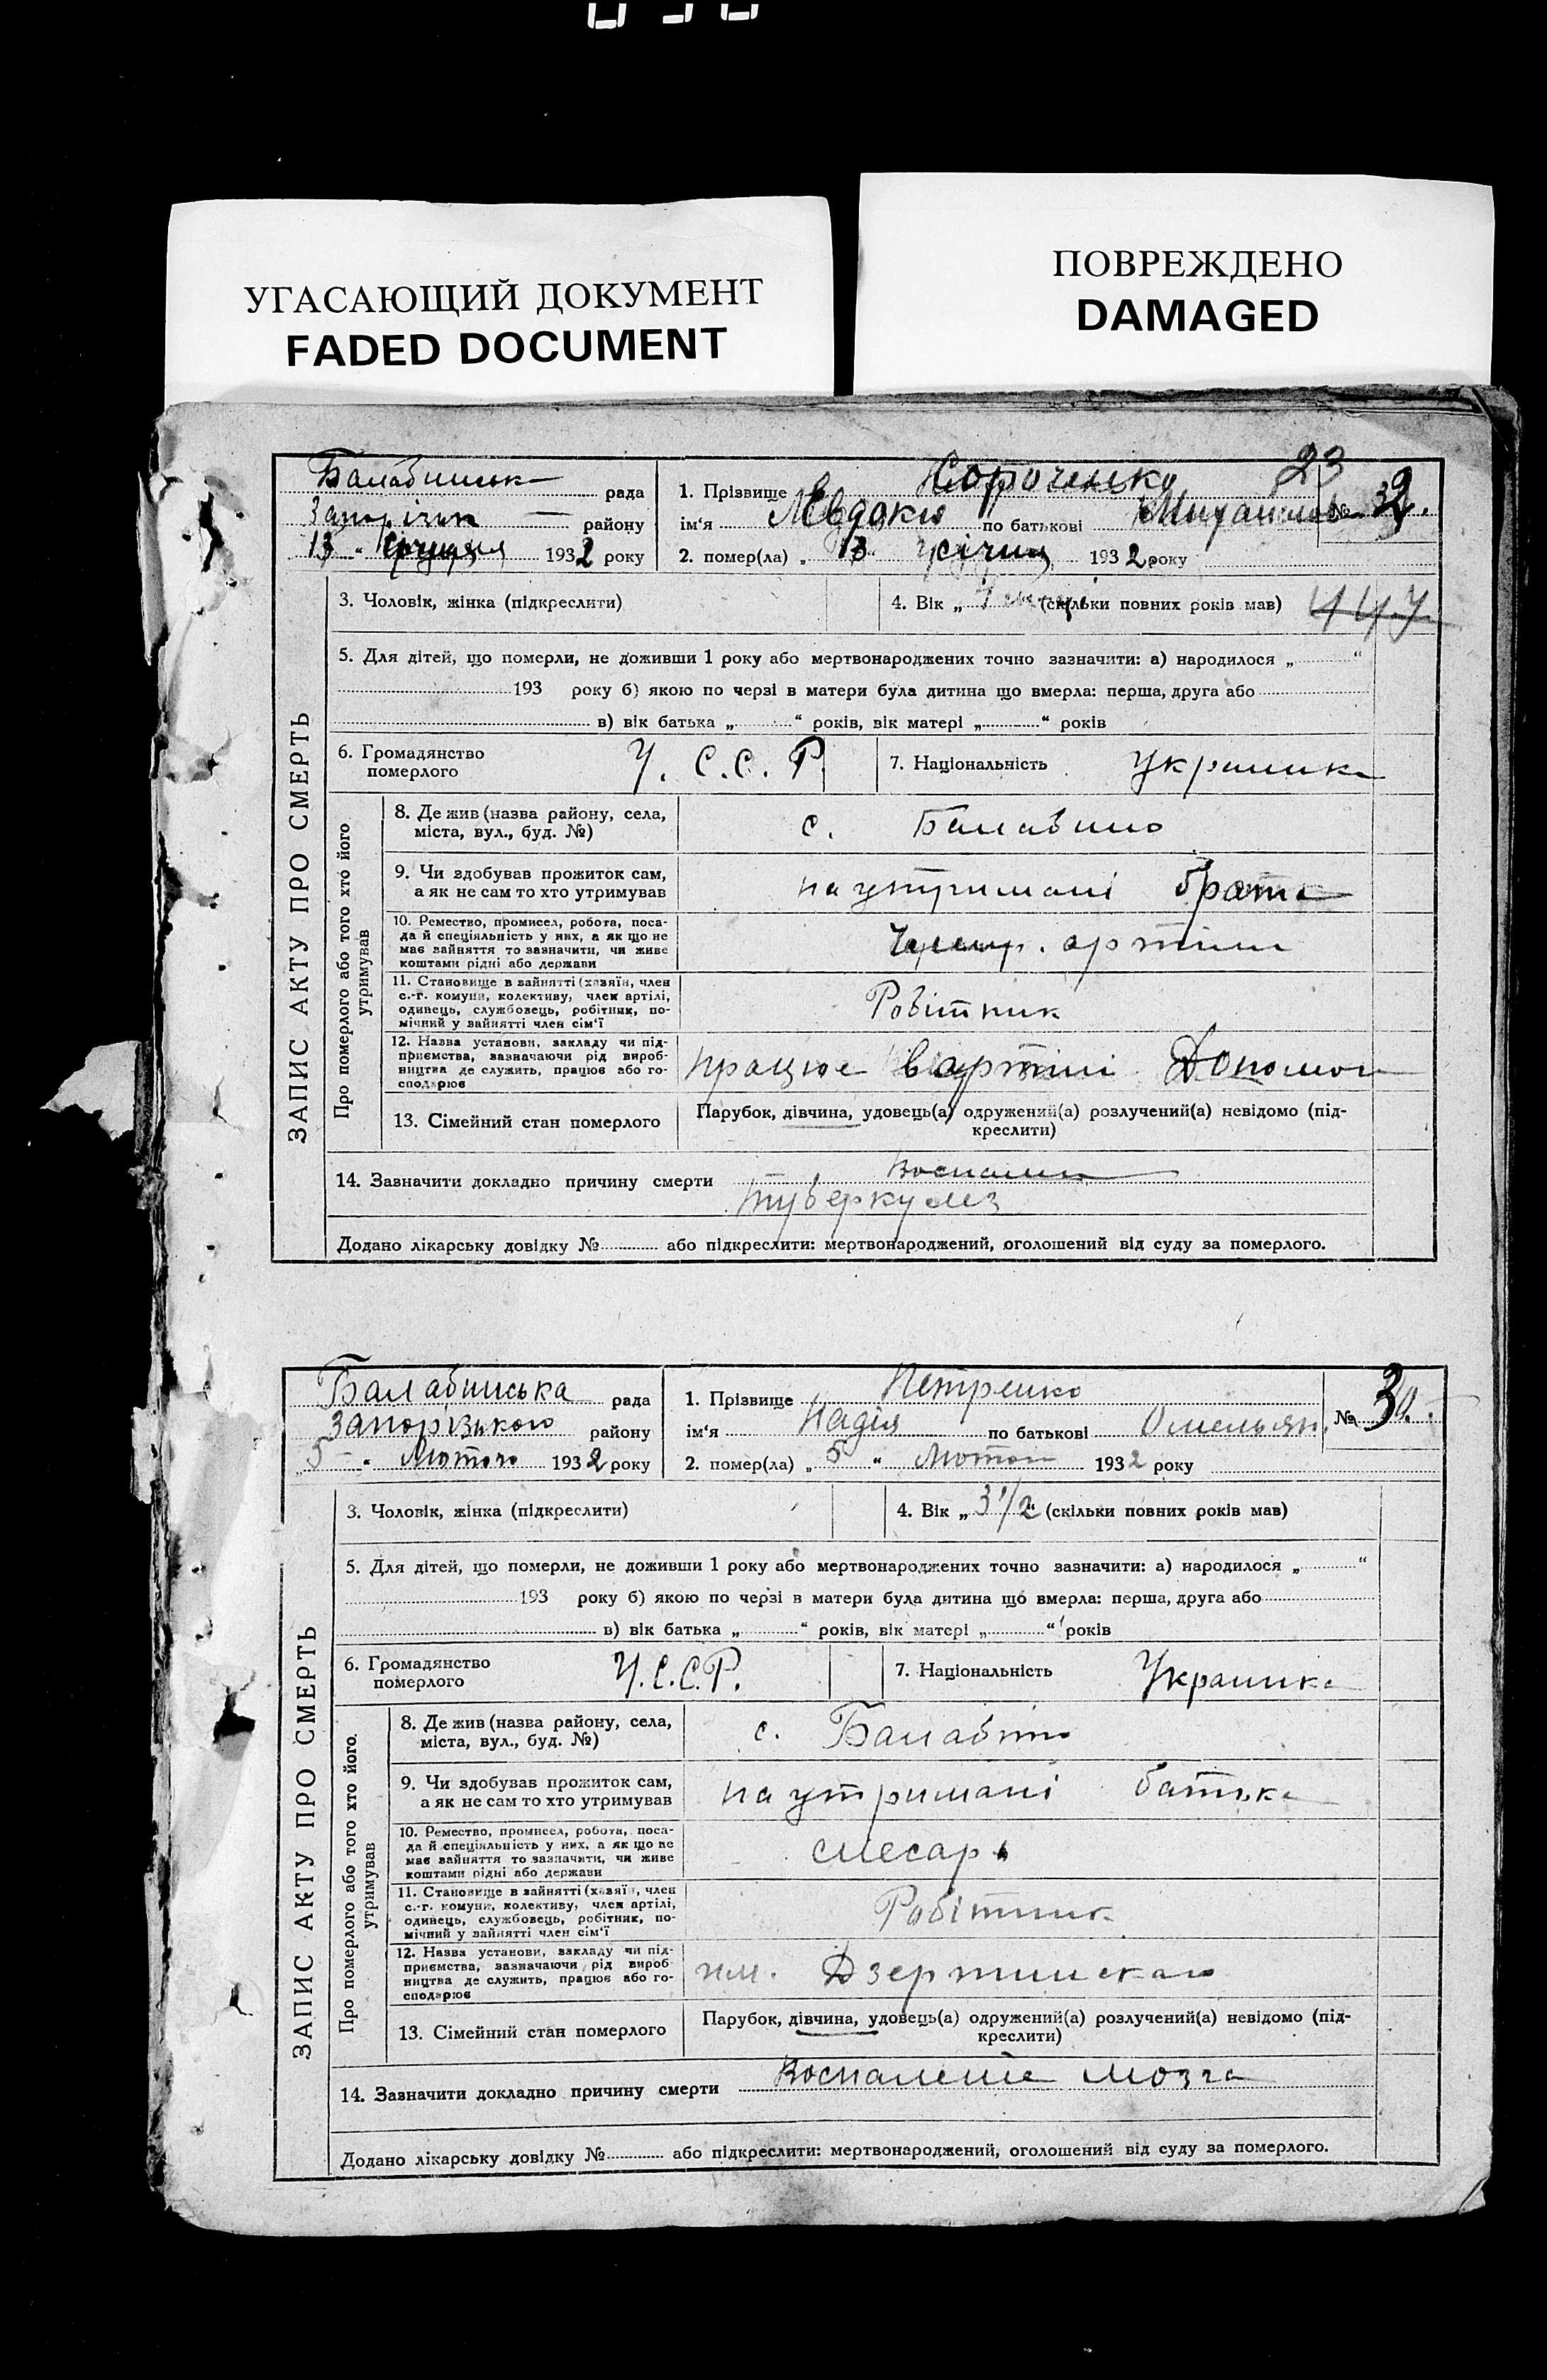 УГАСАЮЩИЙ ДОКУМЕНТ
FADED DOCUMENT
ПОВРЕЖДЕНО
DAMAGED
23
ЗАПИС АКТУ ПРО СМЕРТЬ
рада
району
13 " 1932 року
1. Прізвище Сороченко
ім'я Явдоки по батькові №
2. помер(ла) „ 13 " січня 1932 року
3. Чоловік, жінка (підкреслити)
4. Вік „ (скільки повних років мав)
447
5. Для дітей, що померли, не доживши 1 року або мертвонароджених точно зазначити: а) народилося „ “
193 року б) якою по черзі в матери була дитина що вмерла: перша, друга або
в) вік батька „ “ років, вік матері „ “ років
6. Громадянство
померлого
У. С.С.Р.
7. Національність Украинка
Про померлого або того хто його
утримував
8. Де жив (назва району, села,
міста, вул., буд. №)
с. Балабино
9. Чи здобував прожиток сам,
а як не сам то хто утримував
на утримані брата
10. Ремество, промисел, робота, поса-
да й спеціяльність у них, а як що не
має зайняття то зазначити, чи живе
коштами рідні або держави
артіли
11. Становище в зайнятті (хазяїн, член
с.-г. комуни, колективу, член артілі,
одинець, службовець, робітник, по-
мічний у зайнятті член сім'ї
Робітник
12. Назва установи, закладу чи під-
приємства, зазначаючи рід вироб-
ництва де служить, працює або го-
сподарює
працює в артілі
13. Сімейний стан померлого
Парубок, дівчина, удовець(а) одружений(а) розлучений(а) невідомо (під-
креслити)
14. Зазначити докладно причину смерти
туберкулез
Додано лікарську довідку № або підкреслити: мертвонароджений, оголошений від суду за померлого.
ЗАПИС АКТУ ПРО СМЕРТЬ
Балабинська рада
Запорізького району
„5 " Лютого 1932 року
1. Прізвище Петренко
ім'я Надія по батькові Омельян. № 30.
2. помер(ла) „ 5 “ Лютого 1932 року
3. Чоловік, жінка (підкреслити)
4. Вік „ 3 1/2 “ (скільки повних років мав)
5. Для дітей, що померли, не доживши 1 року або мертвонароджених точно зазначити: а) народилося „ “
193 року б) якою по черзі в матери була дитина що вмерла: перша, друга або
в) вік батька „ “ років, вік матері „ “ років
6. Громадянство
померлого
У.С.С.Р.
7. Національність Украинка
Про померлого або того хто його
утримував
8. Де жив (назва району, села,
міста, вул., буд. №)
с. Балабіно
9. Чи здобував прожиток сам,
а як не сам то хто утримував
на утримані батька
10. Ремество, промисел, робота, поса-
да й спеціяльність у них, а як що не
має зайняття то зазначити, чи живе
коштами рідні або держави
слесарь
11. Становище в зайнятті (хазяїн, член
с.-г. комуни, колективу, член артілі,
одинець, службовець, робітник, по-
мічний у зайнятті член сім'ї
Робітник
12. Назва установи, закладу чи під-
приємства, зазначаючи рід вироб
ництва де служить, працює або го-
сподарює
им.
13. Сімейний стан померлого
Парубок, дівчина, удовець(а) одружений(а) розлучений(а) невідомо (під-
креслити)
14. Зазначити докладно причину смерти Воспаление мозга
Додано лікарську довідку № або підкреслити: мертвонароджений, оголошений від суду за померлого.